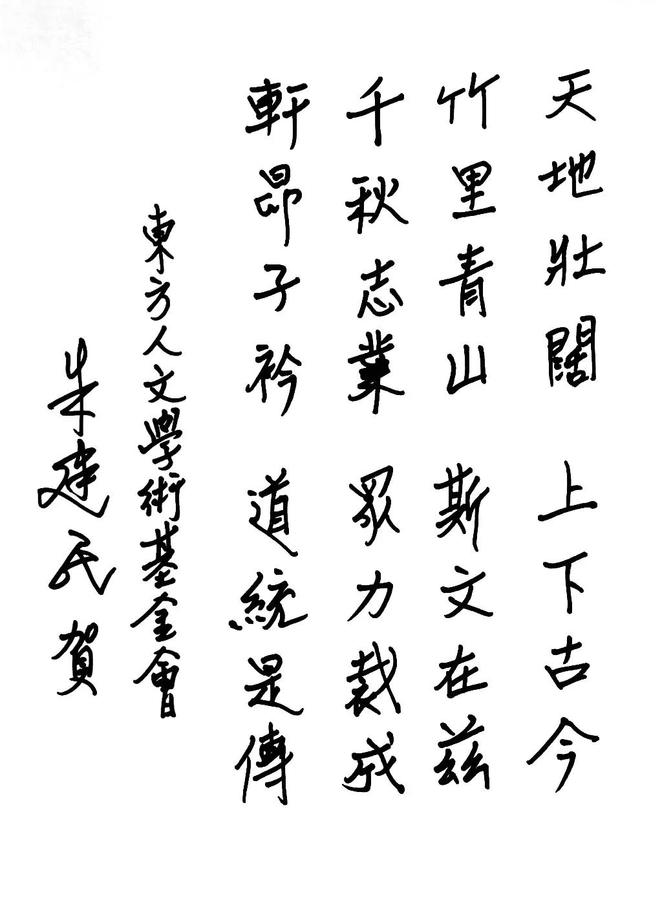 天地壯闊 上下古今
竹里青山 斯文在茲
千秋志業 眾力裁成
軒昂子衿 道統是傳
東方人文學術基金會
朱建民賀